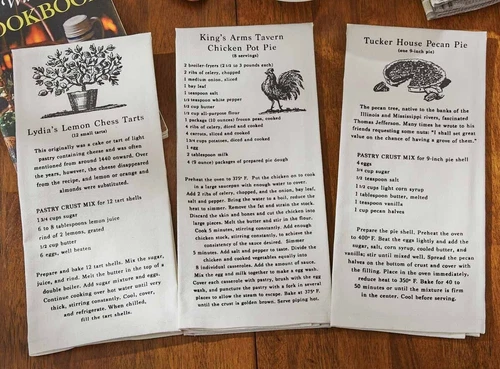 COOKBOOK
Lydia's Lemon Chess Tarts
(12 small tarts)
This originally was a cake or tart of light
pastry containing cheese and was often
mentioned from around 1440 onward. Over
the years, however, the cheese disappeared
from the recipe, and lemon or orange and
almonds were substituted.
PASTRY CRUST MIX for 12 tart shells
1 3/4 cups sugar
6 to 8 tablespoons lemon juice
rind of 2 lemons, grated
1/2 cup butter
6 eggs, well beaten
Prepare and bake 12 tart shells. Mix the sugar,
juice, and rind. Melt the butter in the top of a
double boiler. Add sugar mixture and eggs.
Continue cooking over hot water until very
thick, stirring constantly. Cool, cover,
and refrigerate. When chilled,
fill the tart shells.
King's Arms Tavern
Chicken Pot Pie
(8 servings)
2 broiler-fryers (2 1/2 to 3 pounds each)
2 ribs of celery, chopped
1 medium onion, sliced
1 bay leaf
1 teaspoon salt
1/2 teaspoon white pepper
1/2 cup butter
1/2 cup all-purpose flour
1 package (10 ounces) frozen peas, cooked
4 ribs of celery, diced and cooked
4 carrots, sliced and cooked
potatoes, diced and cooked
1 egg
2 tablespoon milk
(9 ounce) packages of prepared pie dough
Preheat the oven to 375° F. Put the chicken on to cook
in a large saucepan with enough water to cover.
Add 2 ribs of celery, chopped, and the onion, bay leaf,
salt and pepper. Bring the water to a boil, reduce the
heat to simmer. Remove the fat and strain the stock.
Discard the skin and bones and cut the chicken into
large pieces. Melt the butter and stir in the flour.
Cook 5 minutes, stirring constantly. Add enough
chicken stock, stirring constantly, to achieve the
consistency of the sauce desired. Simmer
5 minutes. Add salt and pepper to taste. Divide the
chicken and cooked vegetables equally into
8 individual casseroles. Add the amount of sauce.
Mix the egg and milk together to make a egg wash.
Cover each casserole with pastry, brush with the egg
wash, and puncture the pastry with a fork in several
places to allow the steam to escape. Bake at 375° F
until the crust is golden brown. Serve piping hot.
Tucker House Pecan Pie
(one 9-inch pie)
The pecan tree, native to the banks of the
Illinois and Mississippi rivers, fascinated
Thomas Jefferson. Many times he wrote to his
friends requesting some nuts: "I shall set great
value on the chance of having a grove of them."
PASTRY CRUST MIX for 9-inch pie shell
4 eggs
3/4 cup sugar
1/2 teaspoon salt
1 1/2 cups light corn syrup
1 tablespoon butter, melted
1 teaspoon vanilla
1 cup pecan halves
Prepare the pie shell. Preheat the oven
to 400° F. Beat the eggs lightly and add the
sugar, salt, corn syrup, cooled butter, and
vanilla; stir until mixed well. Spread the pecan
halves on the bottom of crust and cover with
the filling. Place in the oven immediately,
reduce heat to 350° F. Bake for 40 to
50 minutes or until the mixture is firm
in the center. Cool before serving.